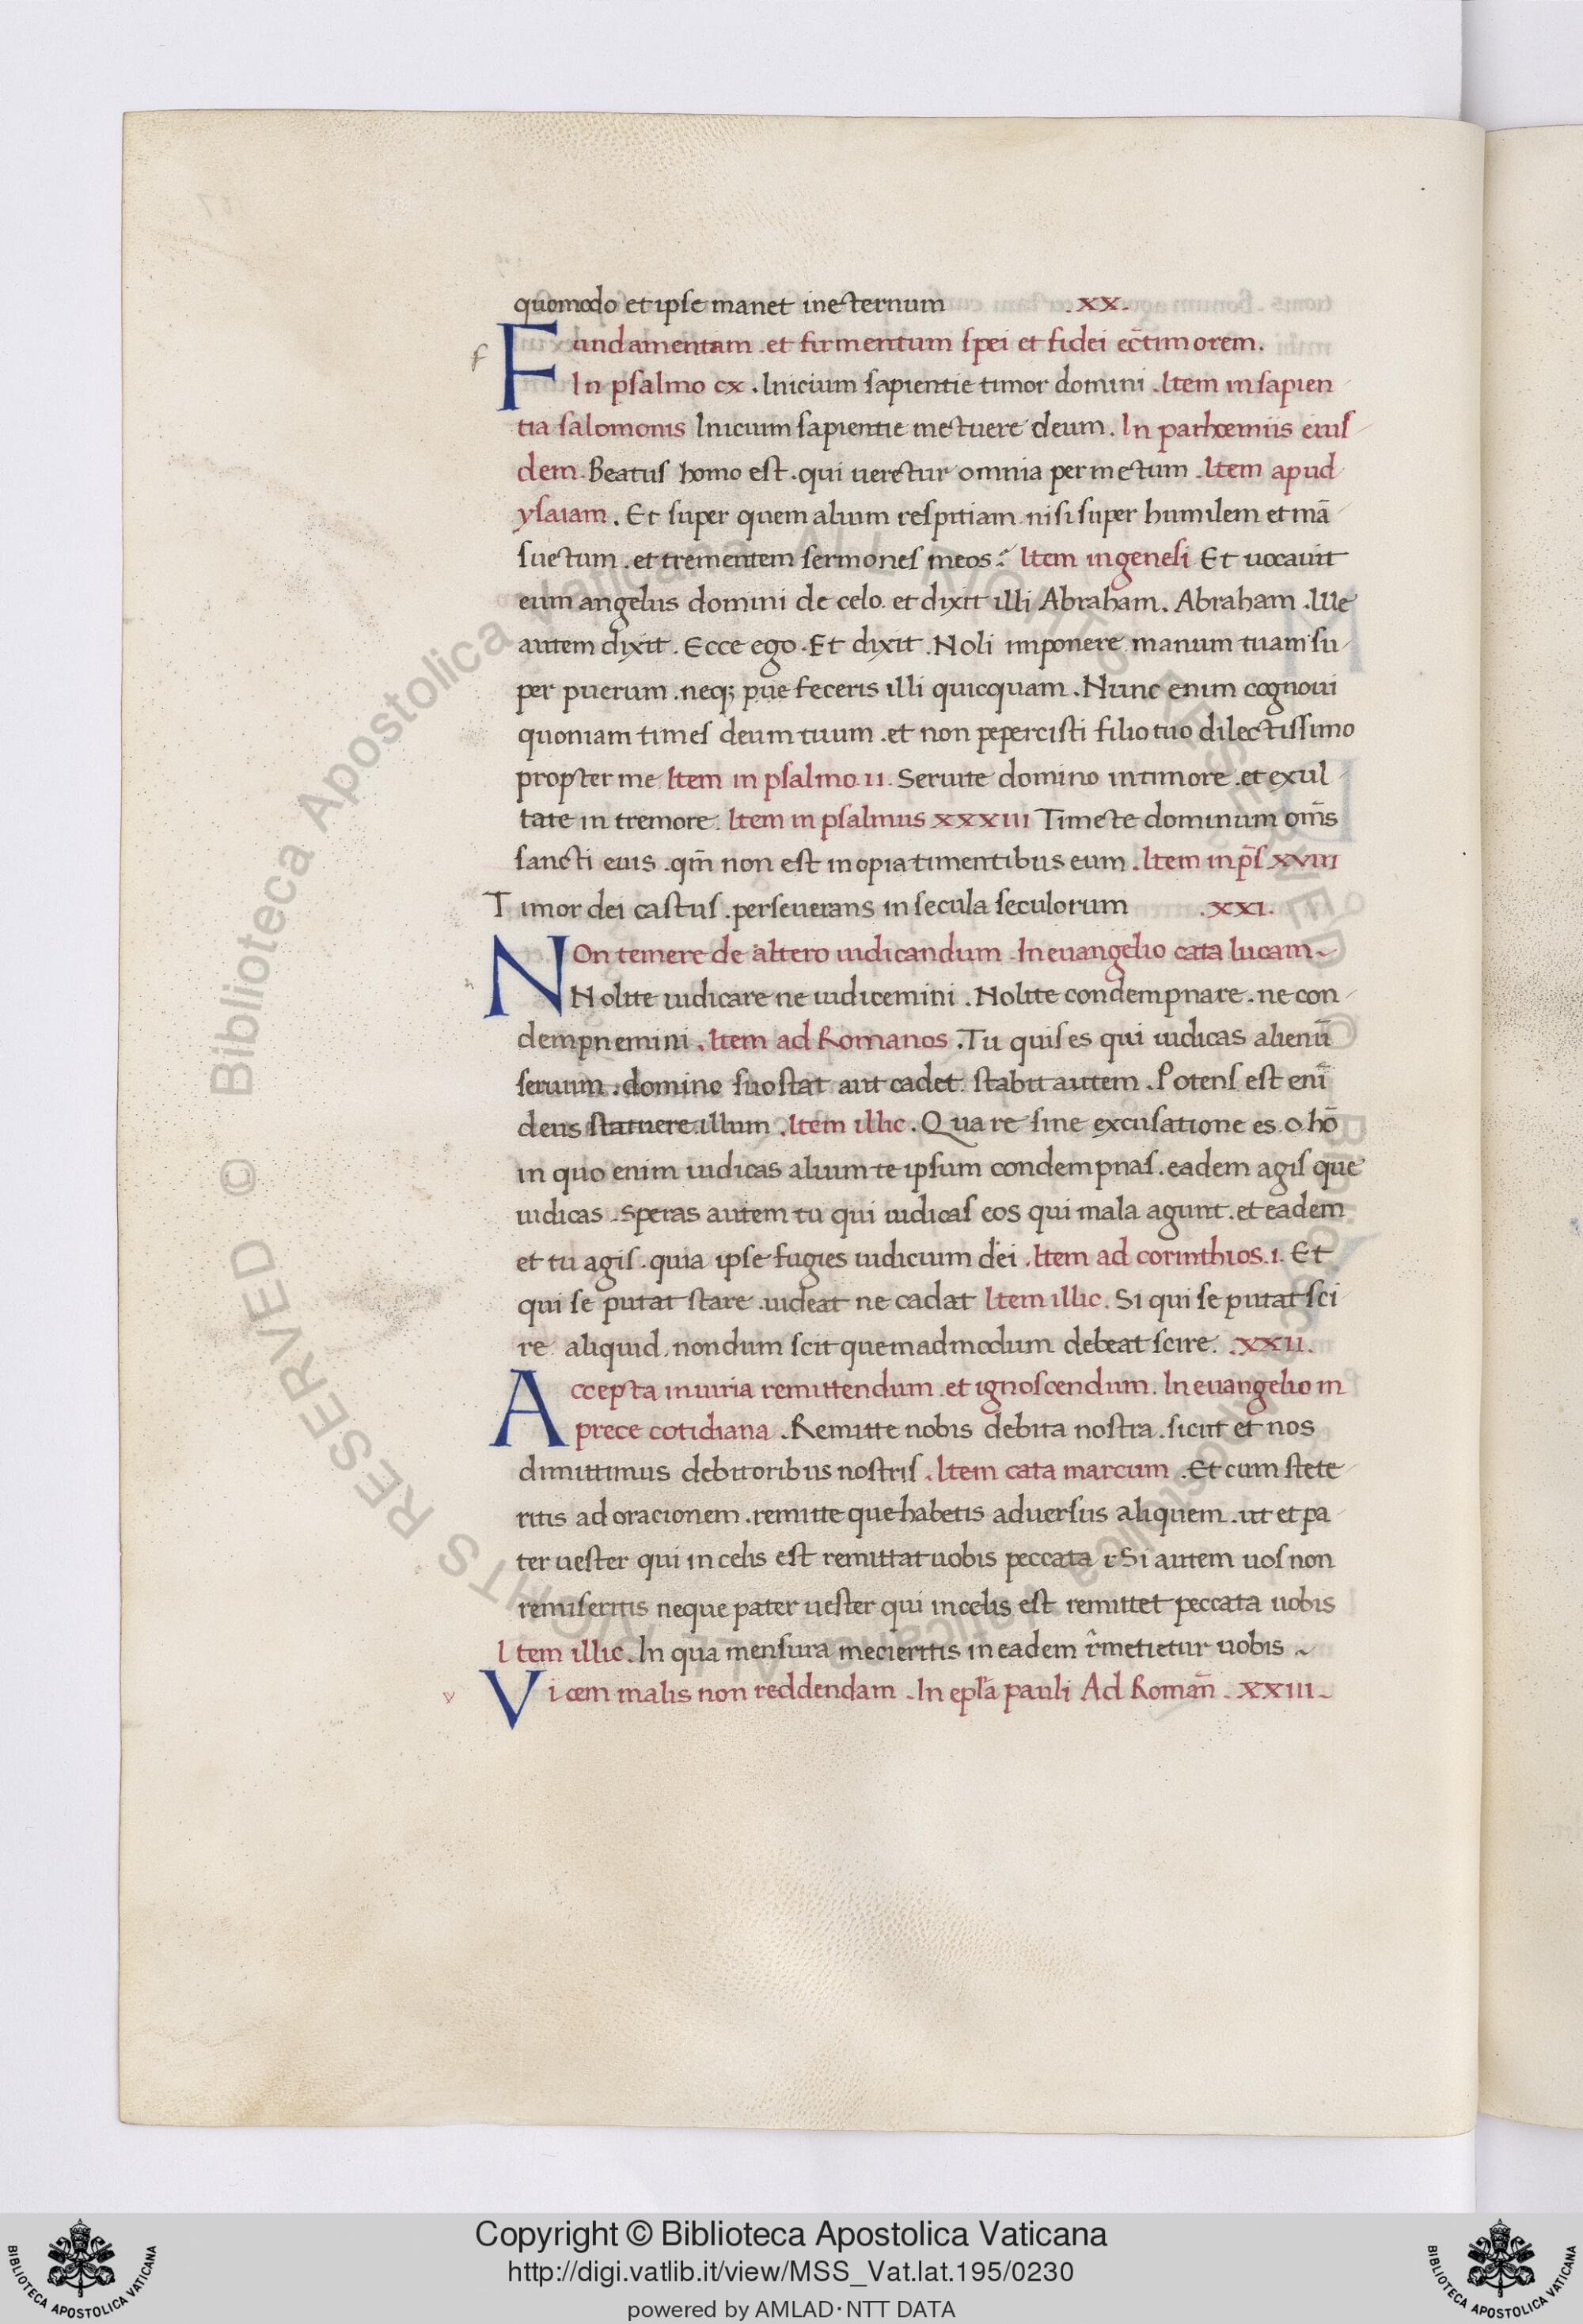 quomodo et ipse manet ineternum .XX.
Fundamentam .et firmentum spei et fidei ec̄timorem.
In psalmo cx .Inicium sapientie timor domini .Item insapien
tia salomonis Inicium sapientie metuere deum. In parhoemiis eius
dem. Beatus homo est .qui ueretur omnia per metum .Item apud
ysaiam. Et super quem alium respitiam nisi super humilem et mā
suetum .et trementem sermones meos: Item ingenesi Et uocauit
eum angelus domini de celo. et dixit illi Abraham. Abraham .Ille
autem dixit. Ecce ego. Et dixit .Noli imponere manum tuam su
per puerum .neq; pue feceris illi quicquam .Nunc enim cognoui
quoniam times deum tuum .et non pepercisti filio tuo dilectissimo
propter me Item in psalmo.II. Seruite domino intimore .et exul
tate in tremore. Item in psalmus XXXIII Timete dominum om̄s
sancti eius .qm̄ non est inopia timentibus eum .Item in p̄s XXVIII
Timor dei castus .perseuerans in secula seculorum .XXI.
NOn temere de altero iudicandum .In euangelio cata lucam
Nolite iudicare ne iudicemini .Nolite condempnare .ne con
dempnemini .Item ad Romanos .Tu quis es qui iudicas alienū
seruum .domino suo stat aut cadet. stabit autem .Potens est enī
deus statuere illum .Item illic. Quare sine excusatione es.o hō
in quo enim iudicas alium te ipsum condempnas .eadem agis que
iudicas .speras autem tu qui iudicas eos qui mala agunt .et eadem
et tu agis .quia ipse fugies iudicium dei .Item ad corinthios.I. Et
qui se putat stare .uideat ne cadat Item illic. Si qui se putat sci
re aliquid, nondum scit quemadmodum debeat scire. .XXII.
Accepta iniuria remittendum .et ignoscendum. In euangelio in
prece cotidiana .Remitte nobis debita nostra .sicut et nos
dimittimus debitoribus nostris .Item cata marcum .Et cum stete
ritis ad oracionem .remitte que habetis aduersus aliquem .ut et pa
ter uester qui in celis est remittat uobis peccata. Si autem uos non
remiseritis neque pater uester qui in celis est remittet peccata uobis
Item illic. In qua mensura mecieritis in eadem r̄metietur uobis
Vicem malis non reddendam .In epl̄a pauli Ad Roman̄. XXIII.
f
n
v
Copyright © Biblioteca Apostolica Vaticana
http://digi.vatlib.it/view/MSS_Vat.lat.195/0230
powered by AMLAD·NTT DATA
BIBLIOTECA APOSTOLICA VATICANA
BIBLIOTECA APOSTOLICA VATICANA
© Biblioteca Apostolica Vaticana ALL RIGHTS RESERVED © Biblioteca Apostolica Vaticana ALL RIGHTS RESERVED